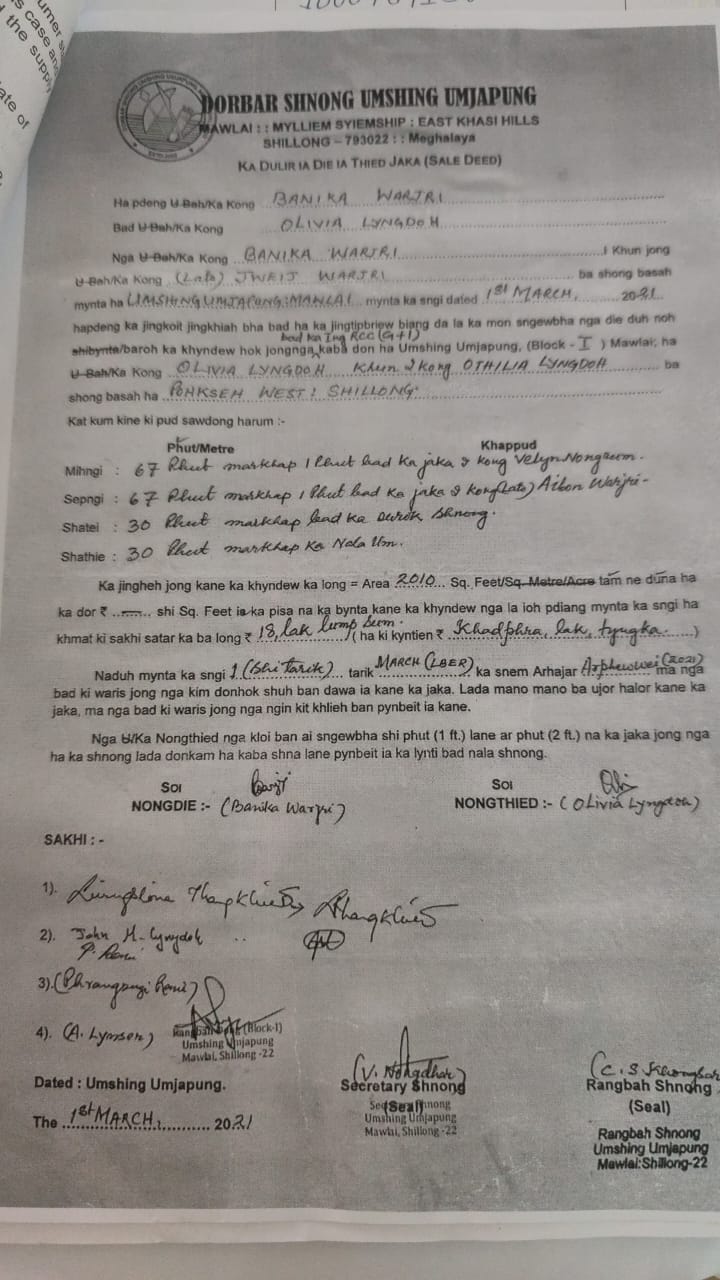 umer s
s case and
the supply
ate of
DORBAR SHNONG UMSHING UMJAPUNG
MAWLAI : : MYLLIEM SYIEMSHIP : EAST KHASI HILLS
SHILLONG – 793022 : : Meghalaya
KA DULIR IA DIE IA THIED JAKA (SALE DEED)
Ha pdeng U Bah/Ka Kong BANIKA WARJRI
Bad U Bah/Ka Kong OLIVIA LYNGDOH
Nga U Bah/Ka Kong BANIKA WARJRI I Khun jong
U Bah/Ka Kong (Late) JWEIT WARJRI ba shong basah
mynta ha UMSHING UMJAPUNG: MAWLAI mynta ka sngi dated 1st MARCH, 2021
hapdeng ka jingkoit jingkhiah bha bad ha ka jingtipbriew biang da la ka mon sngewbha nga die duh noh
bad ka Ing RCC (G+1)
shibynta/baroh ka khyndew hok jongnga, kaba don ha Umshing Umjapung, (Block - I ) Mawlai; ha
U Bah/Ka Kong OLIVIA LYNGDOH Khun I kong OTHILIA LYNGDOH ba
shong basah ha POHKSEH WEST: SHILLONG.
Kat kum kine ki pud sawdong harum :-
Phut/Metre Khappud
Mihngi : 67 Phut markhap 1 Phut bad Ka jaka I kong Velyn Nongrum.
Sepngi : 67 Phut markhap 1 Phut bad Ka jaka I kong (Late) Warjri-
Shatei : 30 Phut markhap bad Ka Surok Shnong.
Shathie : 30 Phut markhap Ka Nala Um.
Ka jingheh jong kane ka khyndew ka long = Area 2010 Sq. Feet/Sq. Metre/Acre tam ne duna ha
ka dor ₹ ...—... shi Sq. Feet is ka pisa na ka bynta kane ka khyndew nga la ioh pdiang mynta ka sngi ha
khmat ki sakhi satar ka ba long ₹ 18, lak lump sum. ( ha ki kyntien ₹ Khadphra, lak, tyngka. )
Naduh mynta ka sngi 1 (Shi tarik) tarik MARCH (LBER) ka snem Arhajar Arphewwei (2021) ma nga
bad ki waris jong nga kim donhok shuh ban dawa ia kane ka jaka. Lada mano mano ba ujor halor kane ka
jaka, ma nga bad ki waris jong nga ngin kit khlieh ban pynbeit ia kane.
Nga U/Ka Nongthied nga kloi ban ai sngewbha shi phut (1 ft.) lane ar phut (2 ft.) na ka jaka jong nga
ha ka shnong lada donkam ha kaba shna lane pynbeit ia ka lynti bad nala shnong.
SOI SOI
NONGDIE :- (Banika Warjri) NONGTHIED :- (Olivia Lyngdoh)
SAKHI : -
1). Thangkhiew
2). John M. Lyngdoh
3).
4). (A. Lymsen)
Rangbah (Block-I)
Umshing Umjapung
Mawlai, Shillong -22
Dated : Umshing Umjapung.
The 1st MARCH, 2021
Secretary Shnong
(Seal)
Umshing Umjapung
Mawlai, Shillong -22
Rangbah Shnong
(Seal)
Rangbah Shnong
Umshing Umjapung
Mawlai:Shillong-22